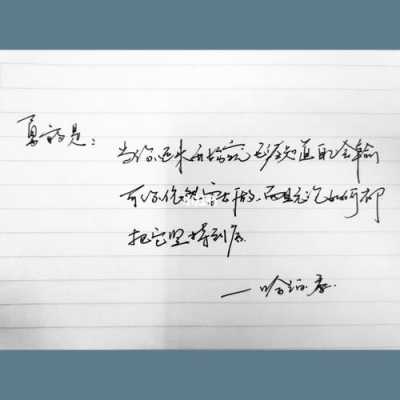 勇敢是：
当你还未开始就已经知道自己会输
可你依然要去做，而且无论如何都
把它坚持到底
—哈珀李.